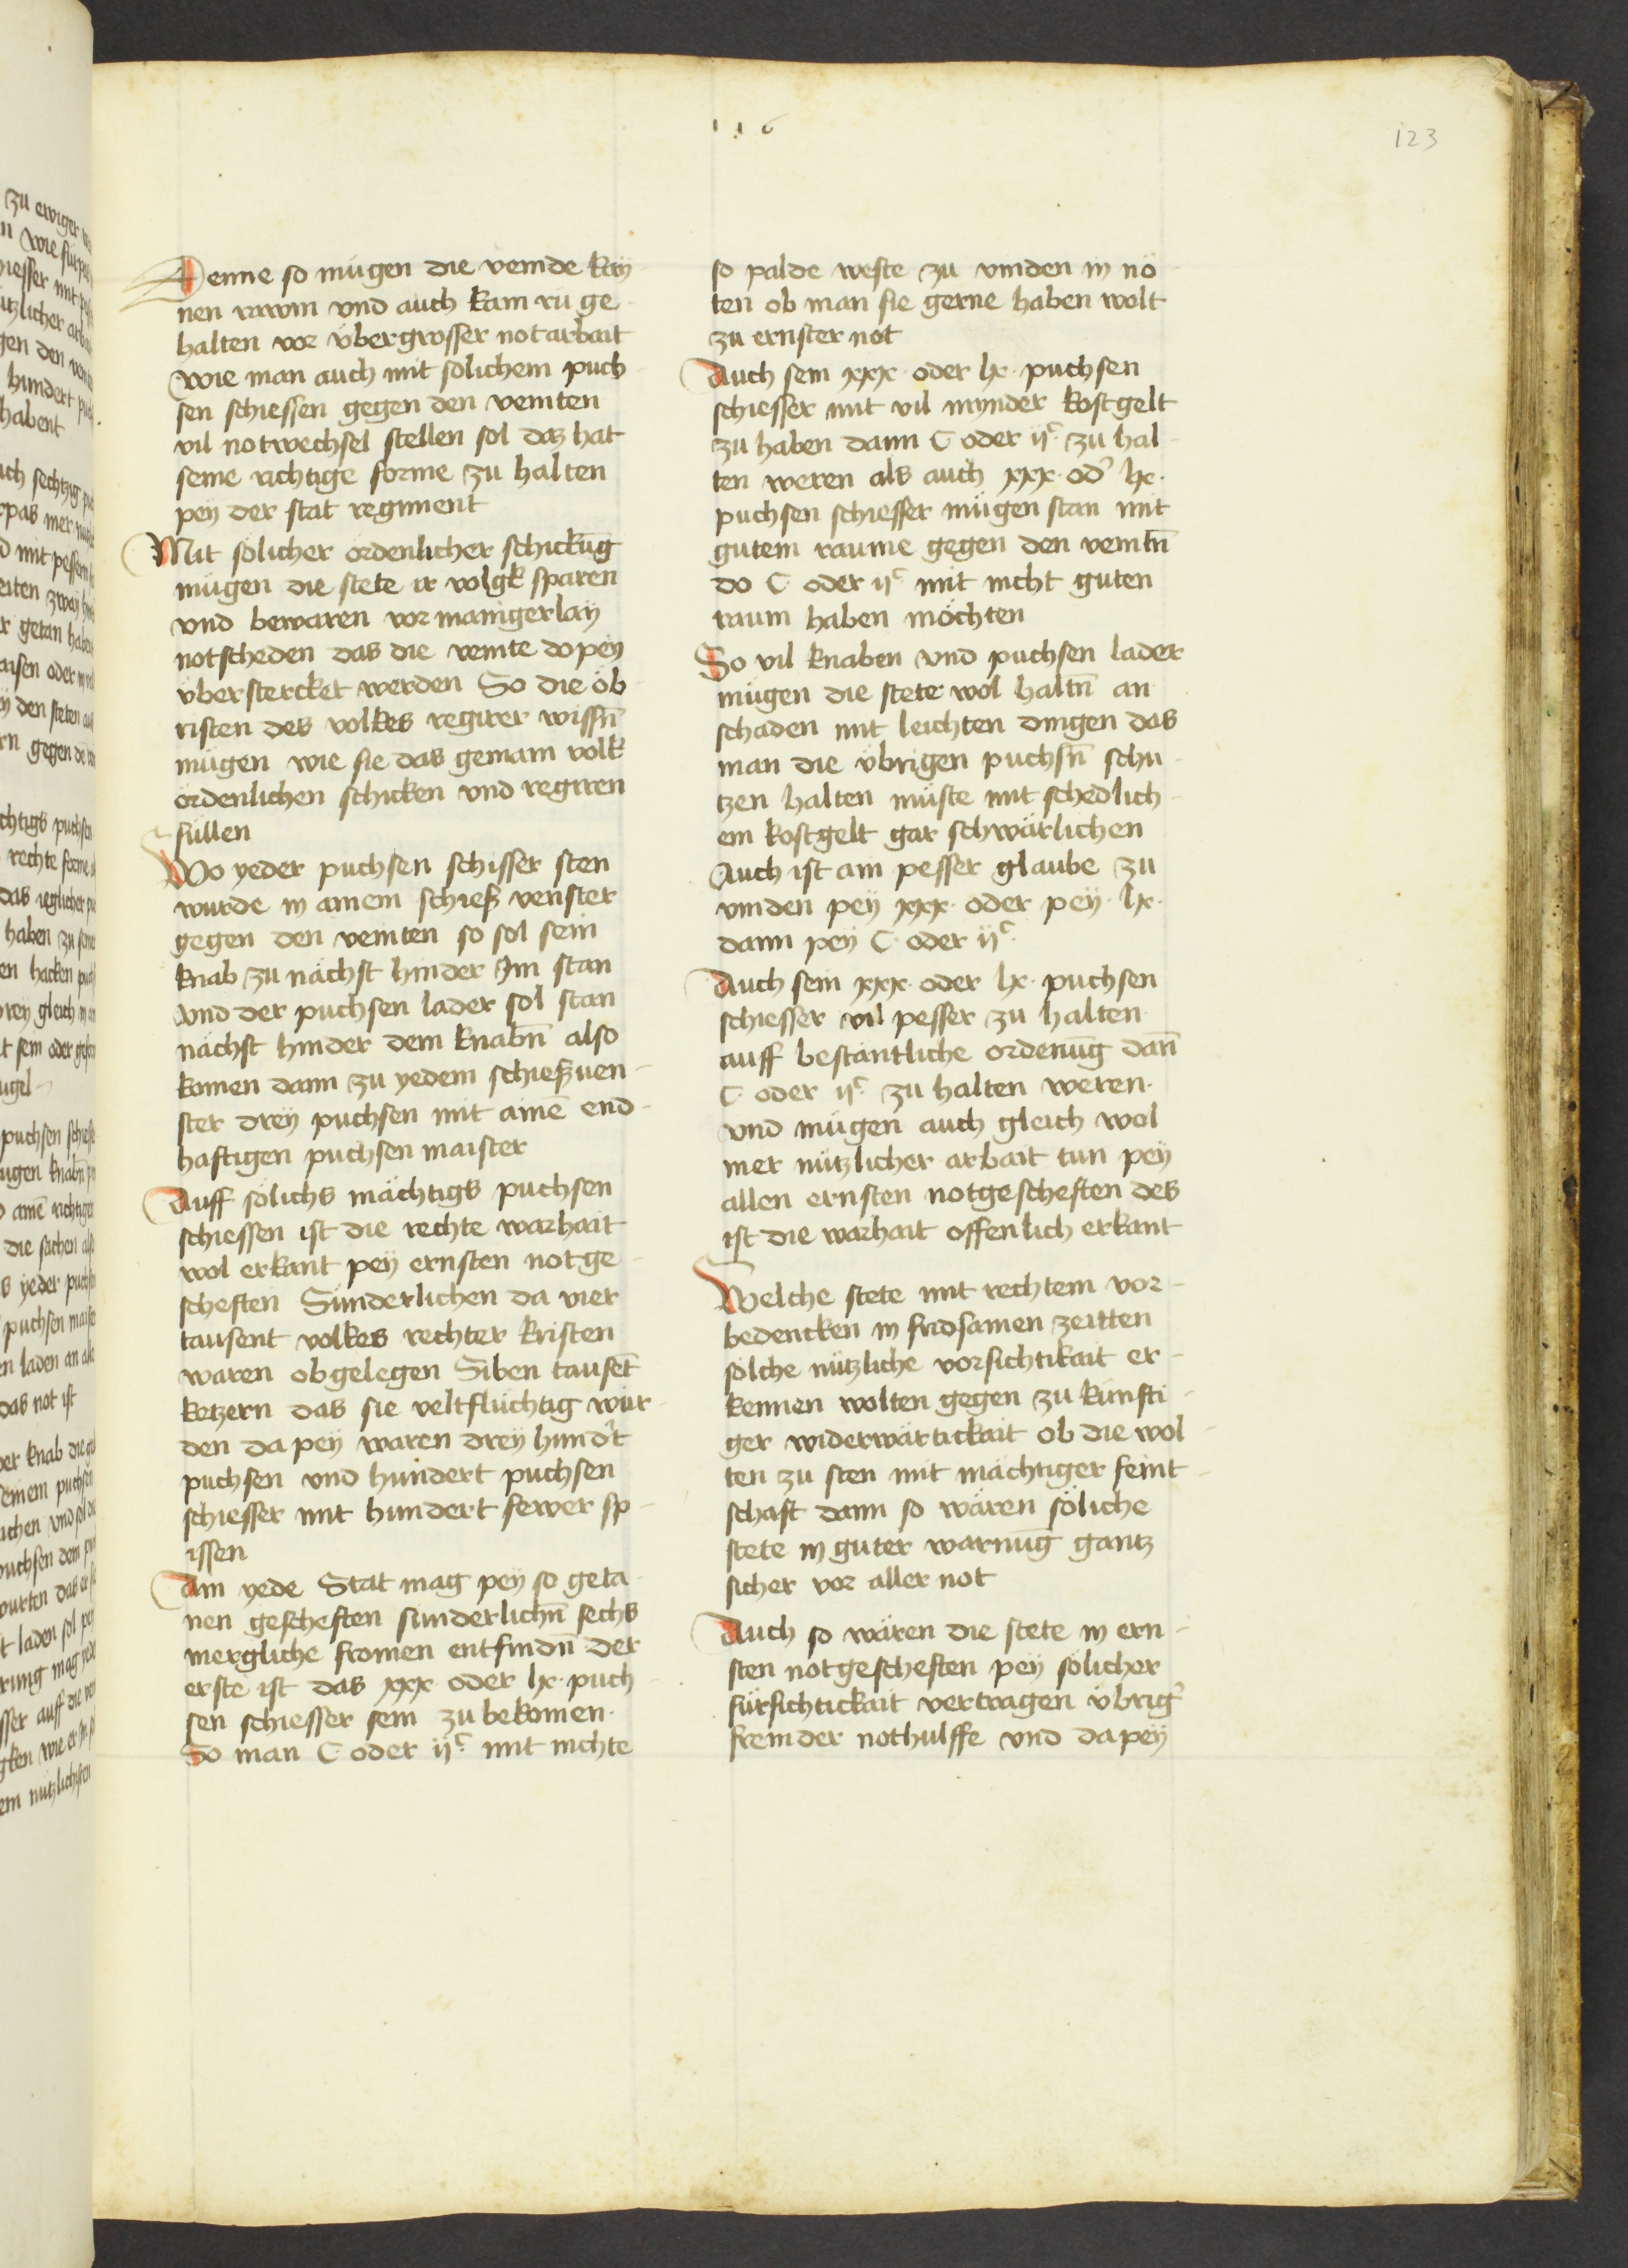 116
123
Denne so mügen die veinde kay
nen rawm vnd auch kain ru ge
halten vor übergrosser notarbait
Wie man auch mit solichem puch
sen schiessen gegen den veinten
vil notwechsel stellen sol daz hat
seine richtige forme zu halten
pey der stat regiment
Mit solicher ordenlicher schickūg
mügen die stete ir volgk sparen
vnd bewaren vor manigerlay
notscheden das die veinte do pey
überstercket werden So die öb
risten des volkes regirer wissn̄
mügen wie sie das gemain volk
ordenlichen schicken vnd regiren
süllen
Wo yeder puchsen schisser sten
wurde in ainem schieß venster
gegen den veinten so sol sein
knab zu nächst hinder Im stan
vnd der puchsen lader sol stan
nächst hinder dem knabn̄ also
komen dann zu yedem schießuen-
ster drey puchsen mit ainē end-
haftigen puchsen maister
Auff sölichs mächtigs puchsen
schiessen ist die rechte warhait
wol erkant pey ernsten notge-
scheften Sunderlichen da vier
tausent volkes rechter kristen
waren obgelegen Siben tausēt
ketzern das sie veltflüchtig wur-
den da pey waren drey hund't
puchsen vnd hundert puchsen
schiesser mit hundert fewer sp-
issen
Ain yede Stat mag pey so geta-
nen gescheften sunderlichn̄ sechs
mergliche fromen entfindn̄ der
erste ist das xxx oder lx puch-
sen schiesser sein zu bekomen.
So man C oder ijᶜ mit nichte
so palde weste zu vinden in nö-
ten ob man sie gerne haben wolt
zu ernster not
Auch sein xxx· oder lx· puchsen
schiesser mit vil mynder kostgelt
zu haben dann C oder ijᶜ zu hal-
ten weren als auch xxx· od' lx·
puchsen schiesser mügen stan mit
gutem raume gegen den veintn̄
do C oder ijᶜ mit nicht guten
raum haben möchten
So vil knaben vnd puchsen lader
mügen die stete wol haltn̄ an
schaden mit leichten dingen das
man die übrigen puchsn̄ schu-
tzen halten müste mit schedlich-
em kostgelt gar schwärlichen
Auch ist am pesser glaube zu
vinden pey xxx· oder pey· lx·
dann pey C· oder ijᶜ
Auch sein xxx· oder lx· puchsen
schiesser vil pesser zu halten
auff bestantliche ordenūg dan̄
C· oder ijᶜ zu halten weren.
vnd mügen auch gleich wol
mer nützlicher arbait tun pey
allen ernsten notgescheften des
ist die warhait offenlich erkant
Welche stete mit rechtem vor-
bedencken in fridsamen zeitten
solche nützliche vorsichtikait er-
kennen wolten gegen zu künfti-
ger widerwärtickait ob die wol-
ten zu sten mit mächtiger feint-
schaft dann so wären söliche
stete in guter warnūg gantz
sicher vor aller not
Auch so wären die stete in ern-
sten notgescheften pey solicher
fürsichtickait vertragen übrig'
fremder nothulffe vnd da pey